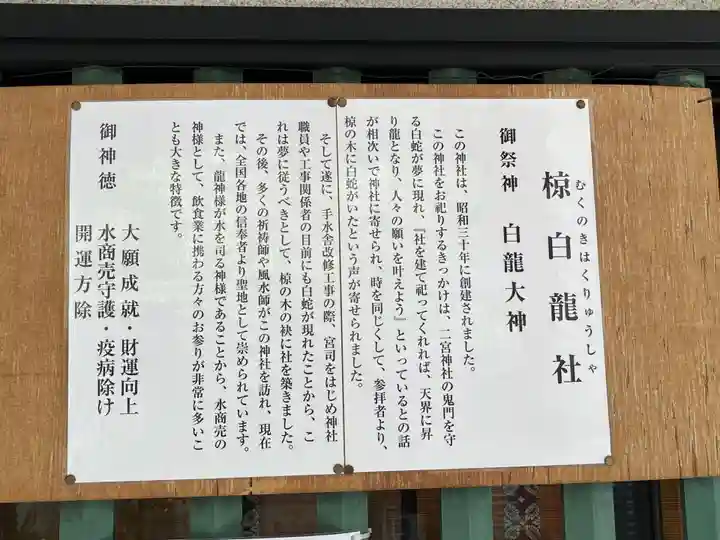 むくのきはくりゅうしゃ
椋白龍社
御祭神　白龍大神
この神社は、昭和三十年に創建されました。
この神社をお祀りするきっかけは、二宮神社の鬼門を守
る白蛇が夢に現れ、『社を建て祀ってくれれば、天界に昇
り龍となり、人々の願いを叶えよう』といっているとの話
が相次いで神社に寄せられ、時を同じくして、参拝者より、
椋の木に白蛇がいたという声が寄せられました。
そして遂に、手水舎改修工事の際、宮司をはじめ神社
職員や工事関係者の目前にも白蛇が現れたことから、こ
れは夢に従うべきとして、椋の木の袂に社を築きました。
その後、多くの祈祷師や風水師がこの神社を訪れ、現在
では、全国各地の信奉者より聖地として崇められています。
また、龍神様が水を司る神様であることから、水商売の
神様として、飲食業に携わる方々のお参りが非常に多いこ
とも大きな特徴です。
御神徳　大願成就・財運向上
水商売守護・疫病除け
開運方除